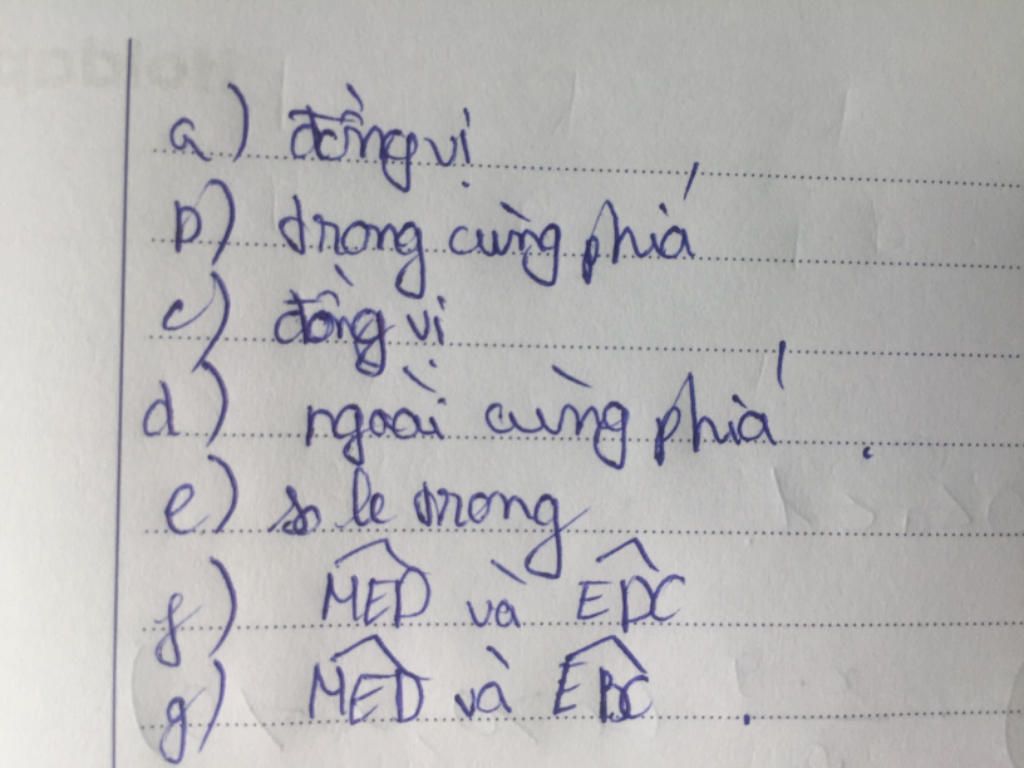 a) đồng vị
b) trong cùng phía
c) đồng vị
d) ngoài cùng phía.
e) so le trong
f) \widehat{MED} và \widehat{EDC}
g) \widehat{MED} và \widehat{EBC}.